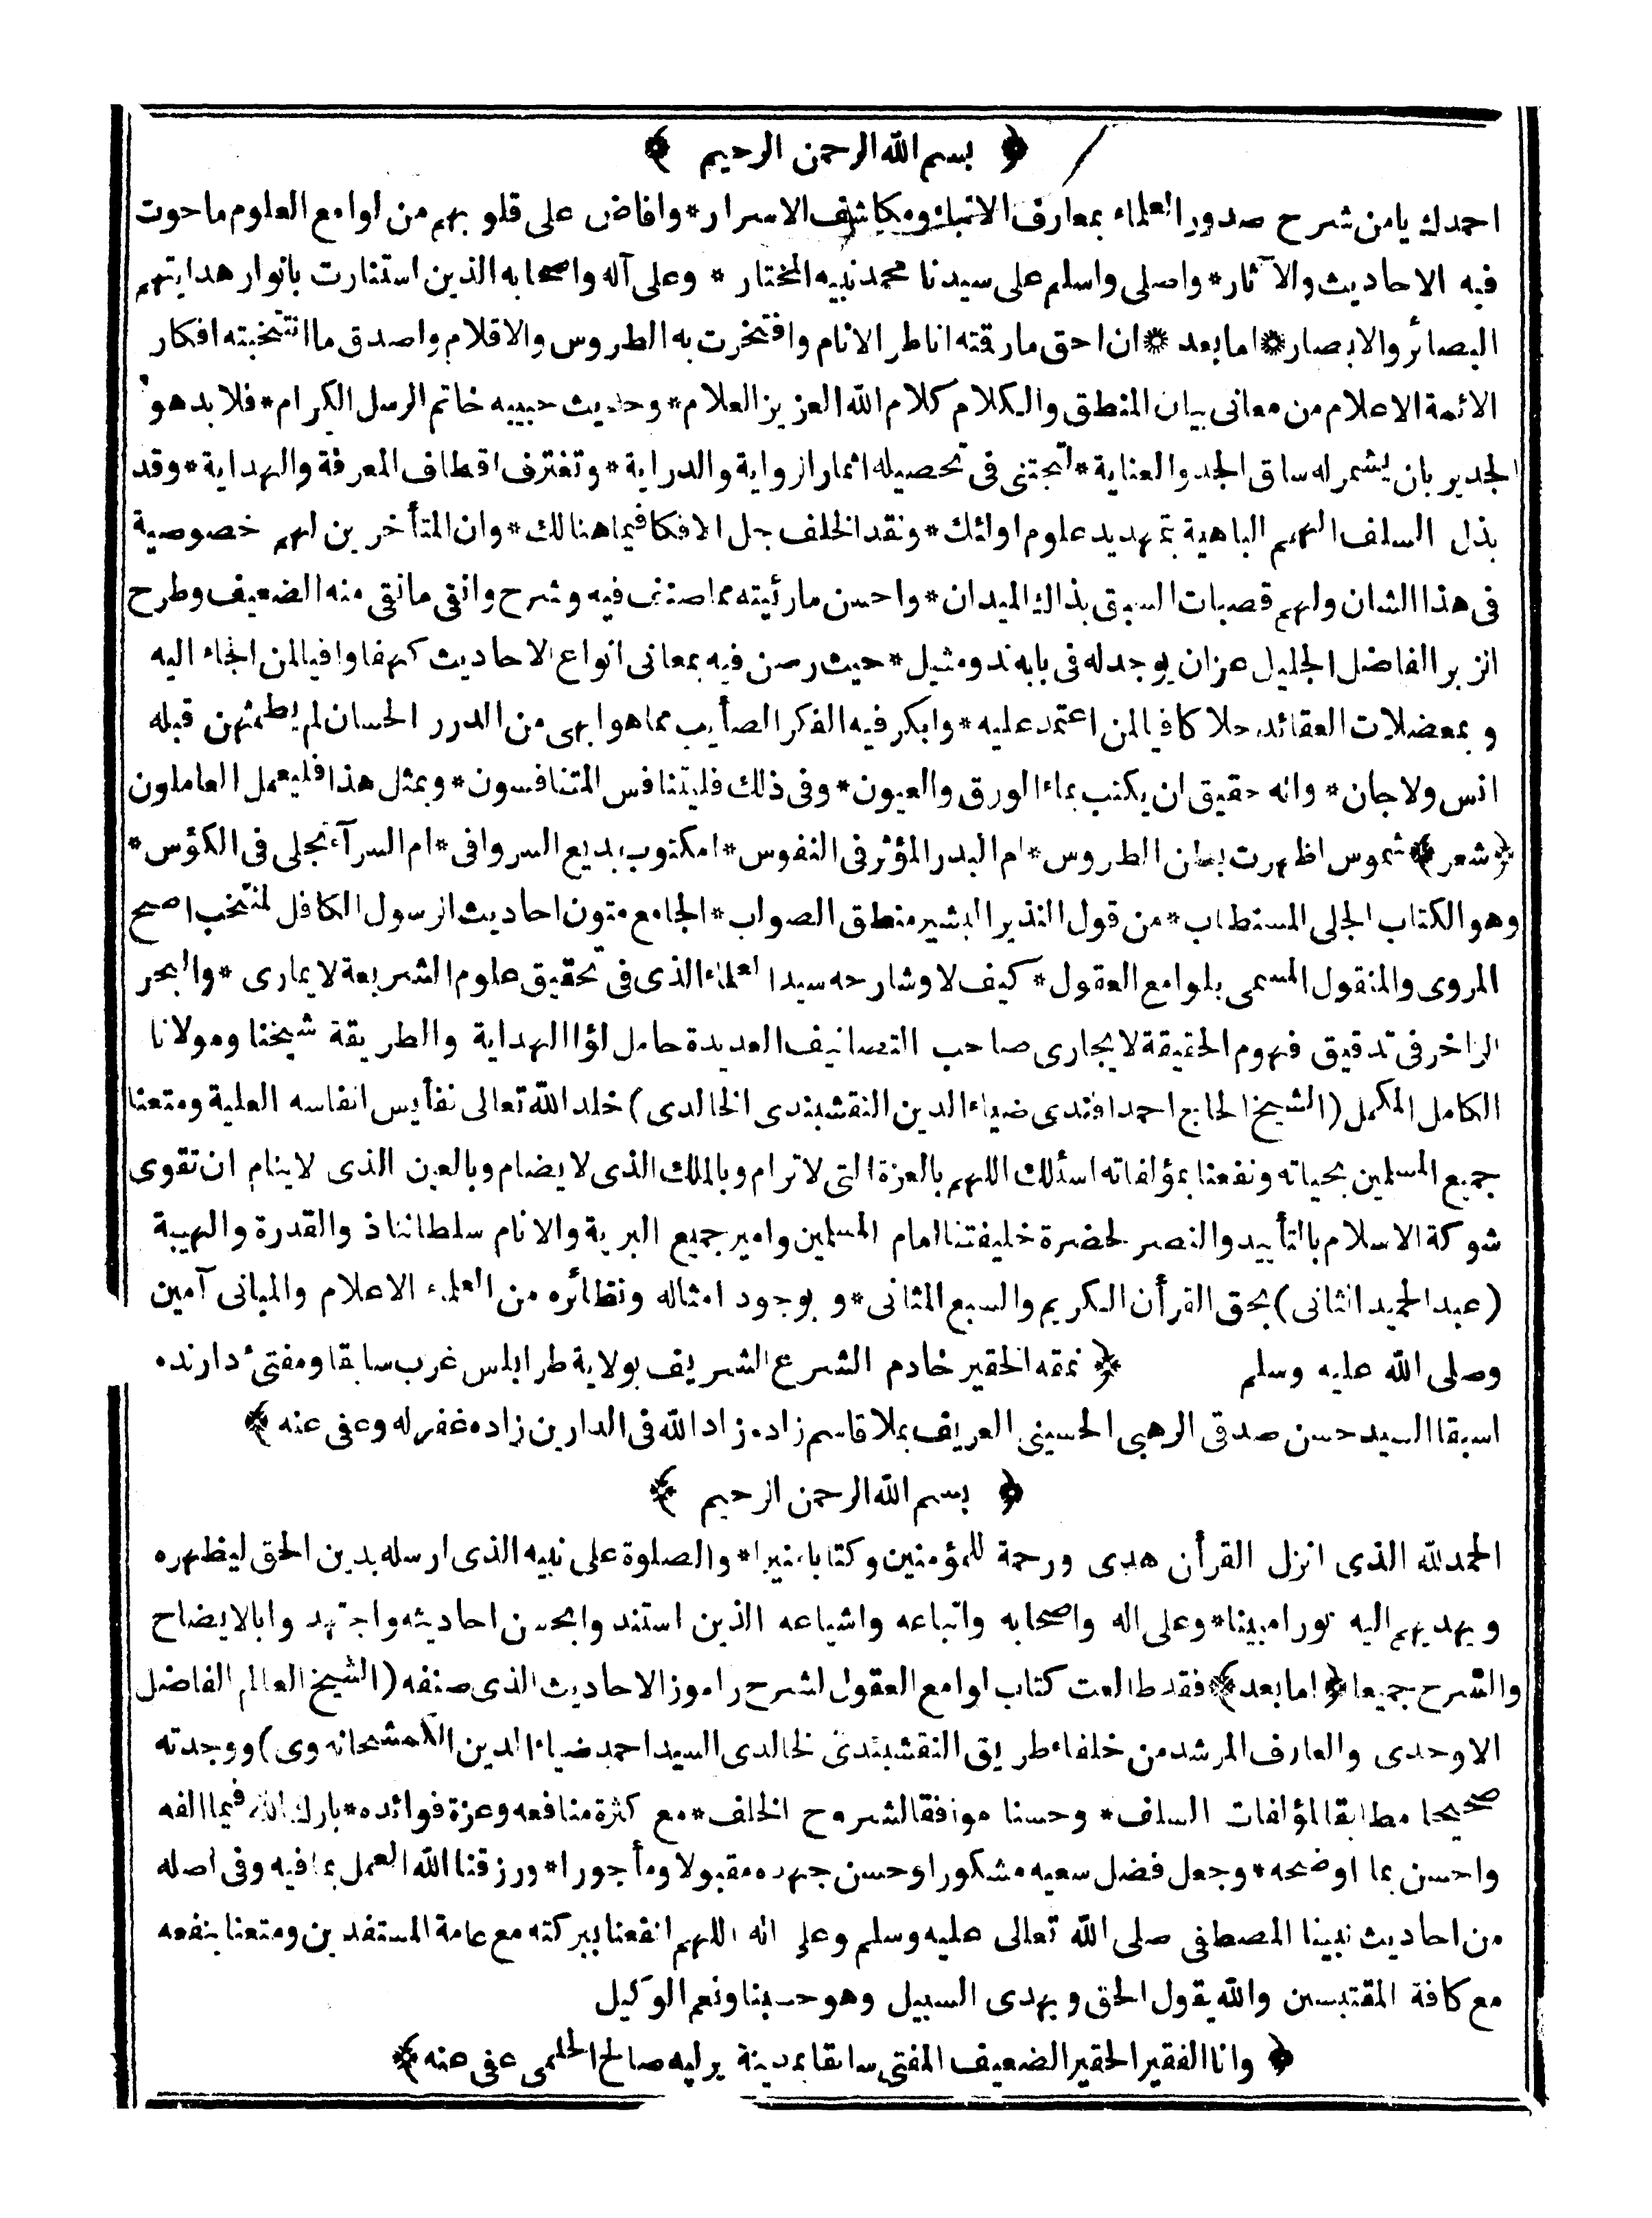 ﴿ بسم الله الرحمن الرحيم ﴾
احمدك يامن شرح صدور العلماء بمعارف الانباء ومكاشف الاسرار * وافاض على قلوبهم من لوامع العلوم ماحوت
فيه الاحاديث والآثار * واصلى واسلم على سيدنا محمد نبيه المختار * وعلى آله واصحابه الذين استنارت بانوار هدايتهم
البصائر والابصار * اما بعد * ان احق مارقته اناطر الانام وافتخرت به الطروس والاقلام واصدق ما انتخبته افكار
الائمة الاعلام من معانى بيان المنطق والكلام كلام الله العزيز العلام * وحديث حبيبه خاتم الرسل الكرام * فلابد هو
الجدير بان يشمر له ساق الجد والعناية * لتجتنى فى تحصيله اثمار الرواية والدراية * وتغترف اقطاف المعرفة والهداية * وقد
بذل السلف الهمم الباهية بتمهيد علوم اولئك * ونقد الخلف جل الافكا فيما هنالك * وان المتأخرين لهم خصوصية
فى هذا الشان ولهم قصبات السبق بذاك الميدان * واحسن مارئيته مما صنف فيه وشرح وانقى مانقى منه الضعيف وطرح
الزبر الفاضل الجليل عزان يوجد له فى بابه ند ومثيل * حيث رصن فيه بمعانى انواع الاحاديث كهفا وافيا لمن التجاء اليه
وبمعضلات العقائد حلا كافيا لمن اعتمد عليه * وابكر فيه الفكر الصأيب مما هو ابهى من الدرر الحسان لم يطمثهن قبله
انس ولا جان * وانه حقيق ان يكتب بماء الورق والعيون * وفى ذلك فليتنافس المتنافسون * وبمثل هذا فليعمل العاملون
﴿ شعر ﴾ شموس اظهرت بطن الطروس * ام البدر المؤثر فى النفوس * امكتوب بديع السر وافى * ام السرآء تجلى فى الكؤس *
وهو الكتاب الجلى المستطاب * من قول النذير البشير منطق الصواب * الجامع متون احاديث الرسول الكافل لمنتخب اصح
المروى والمنقول المسمى بلوامع العقول * كيف لا وشارحه سيد العلماء الذى فى تحقيق علوم الشريعة لايمارى * والبحر
الزاخر فى تدقيق فهوم الحقيقة لايجارى صاحب التصانيف العديدة حامل لؤا الهداية والطريقة شيخنا ومولانا
الكامل المكمل (الشيخ الحاج احمد افندى ضياء الدين النقشبندى الخالدى) خلد الله تعالى نفأيس انفاسه العلية ومتعنا
جميع المسلمين بحياته ونفعنا بمؤلفاته اسئلك اللهم بالعزة التى لاترام وبالملك الذى لايضام وبالعين الذى لاينام ان تقوى
شوكة الاسلام بالتأييد والنصر لحضرة خليفتنا امام المسلمين وامير جميع البرية والانام سلطاننا ذ والقدرة والهيبة
(عبد الحميد الثانى) بحق القرأن الكريم والسبع المثانى * و بوجود امثاله ونظائره من العلماء الاعلام والمبانى آمين
وصلى الله عليه وسلم ﴿ نمقه الحقير خادم الشرع الشريف بولاية طرابلس غرب سابقا ومفتئ دارنده
اسبقا السيد حسن صدقى الرهبى الحسينى العريف بملا قاسم زاده زاد الله فى الدارين زاده غفر له وعفى عنه ﴾
﴿ بسم الله الرحمن الرحيم ﴾
الحمد لله الذى انزل القرأن هدى ورحمة للمؤمنين وكتابا منيرا * والصلوة على نبيه الذى ارسله بدين الحق ليظهره
ويهديهم اليه نورا مبينا * وعلى اله واصحابه واتباعه واشياعه الذين استندوا بحسن احاديثه واجتهدوا بالايضاح
والشرح جميعا ﴿ اما بعد ﴾ فقد طالعت كتاب لوامع العقول لشرح راموز الاحاديث الذى صنفه (الشيخ العالم الفاضل
الاوحدى والعارف المرشد من خلفاء طريق النقشبندى لخالدى السيد احمد ضياء الدين الكمشخانه وى) ووجدته
صحيحا مطابقا لمؤلفات السلف * وحسنا موافقا لشروح الخلف * مع كثرة منافعه وعزة فوائده * بارك الله فيما الفه
واحسن بما اوضحه * وجعل فضل سعيه مشكورا وحسن جهده مقبولا ومأجورا * ورزقنا الله العمل بما فيه وفى اصله
من احاديث نبينا المصطفى صلى الله تعالى عليه وسلم وعلى اله اللهم انفعنا ببركته مع عامة المستفدين ومتعنا بنفعه
مع كافة المقتبسين والله يقول الحق ويهدى السبيل وهو حسبنا ونعم الوكيل
﴿ وانا الفقير الحقير الضعيف المفتى سابقا بمدينة يرليه صالح الحلمى عفى عنه ﴾